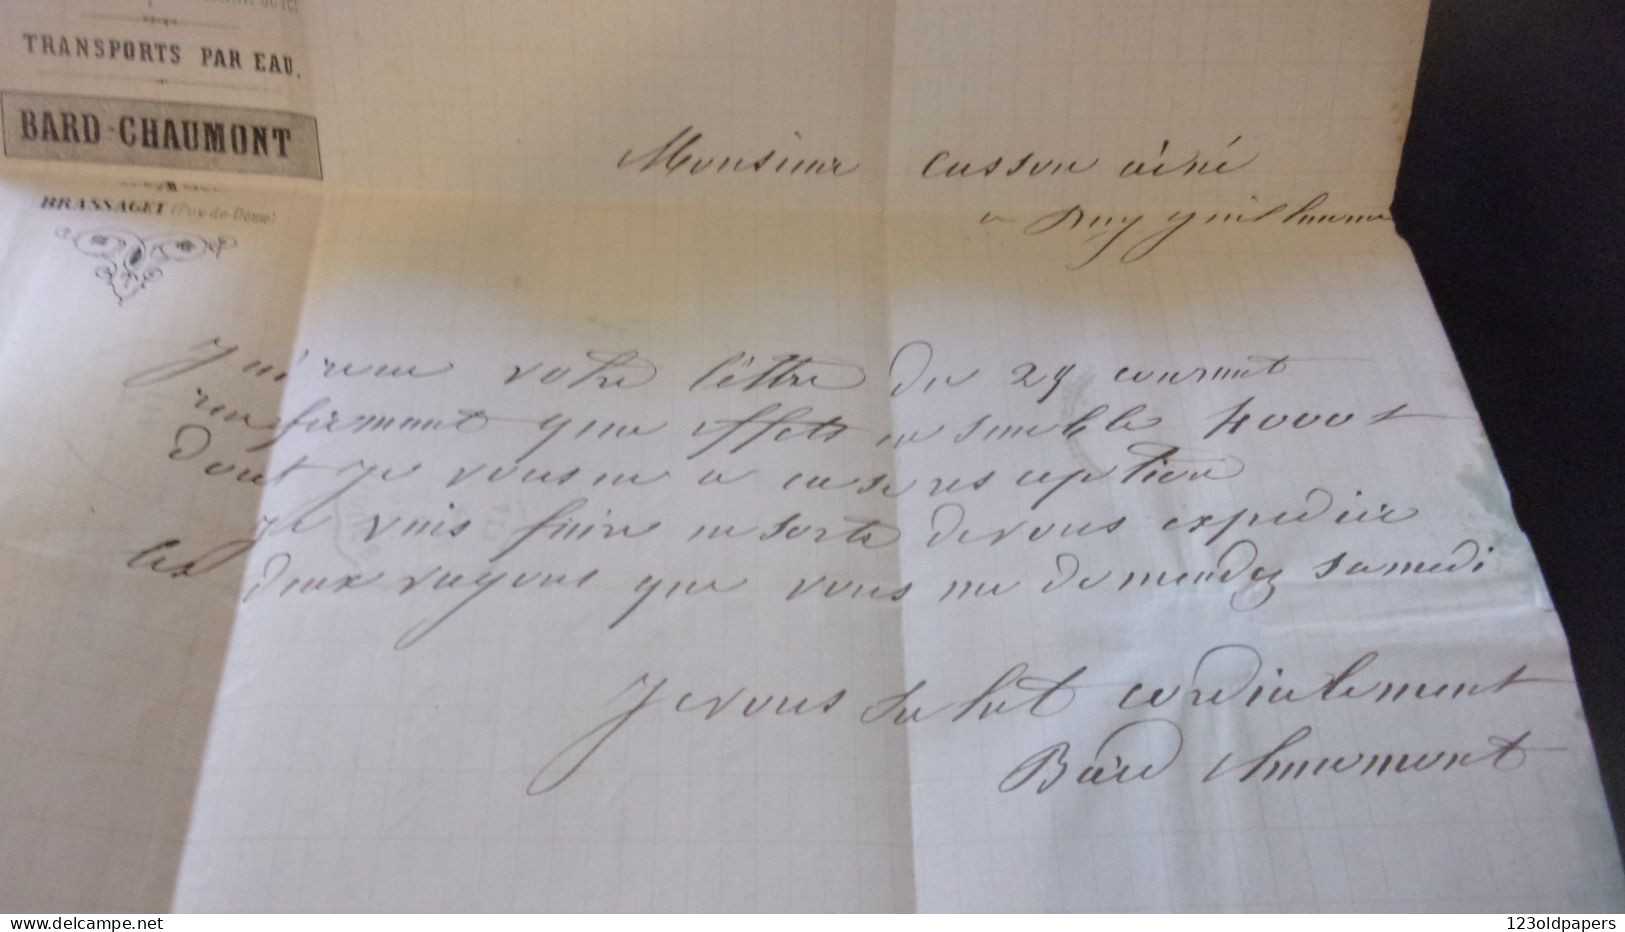 TRANSPORTS PAR EAU.
BARD-CHAUMONT
BRASSAGET (Puy-de-Dôme)
Monsieur cusson ainé
a Puy guilhaume
J'ai recue votre léttre du 29 courant
renfermant que effets ensemble 4000 f
dont je vous
je vais faire ensorte devous expedier
les deux vagons que vous me demendez samedi
Jevous salut cordialement
Bard Chaumont
123oldpapers